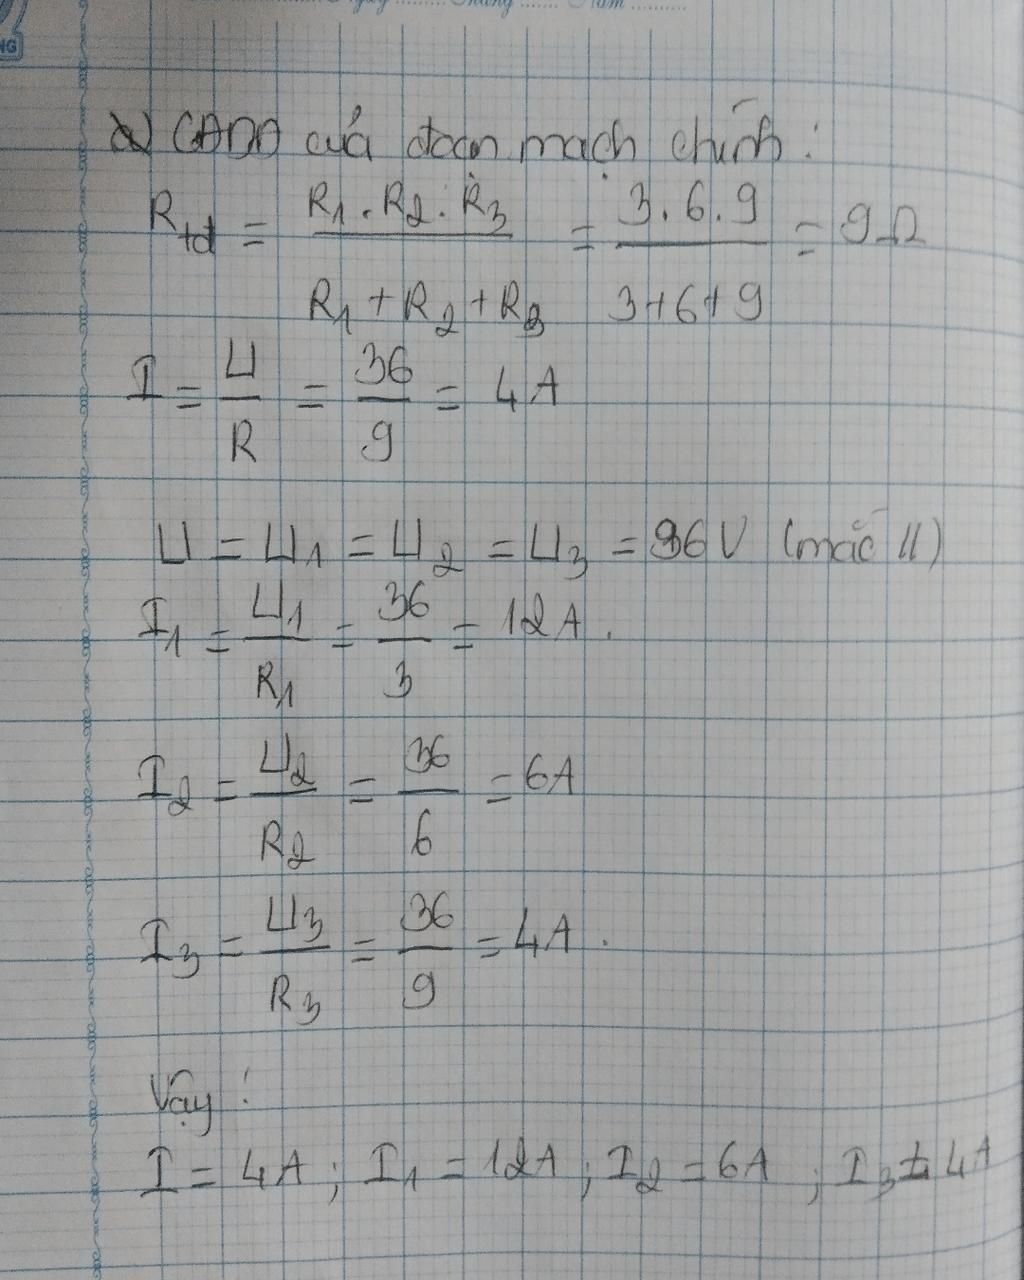 Ngày ......... Tháng ...... Năm ..........
NG
a) CĐDĐ của đoạn mạch chính:
Rtđ = R1 . R2 . R3 / R1 + R2 + R3 = 3 . 6 . 9 / 3 + 6 + 9 = 9Ω
I = U / R = 36 / 9 = 4A
U = U1 = U2 = U3 = 36V (mắc //)
I1 = U1 / R1 = 36 / 3 = 12A.
I2 = U2 / R2 = 36 / 6 = 6A
I3 = U3 / R3 = 36 / 9 = 4A.
Vậy:
I = 4A ; I1 = 12A ; I2 = 6A ; I3 = 4A